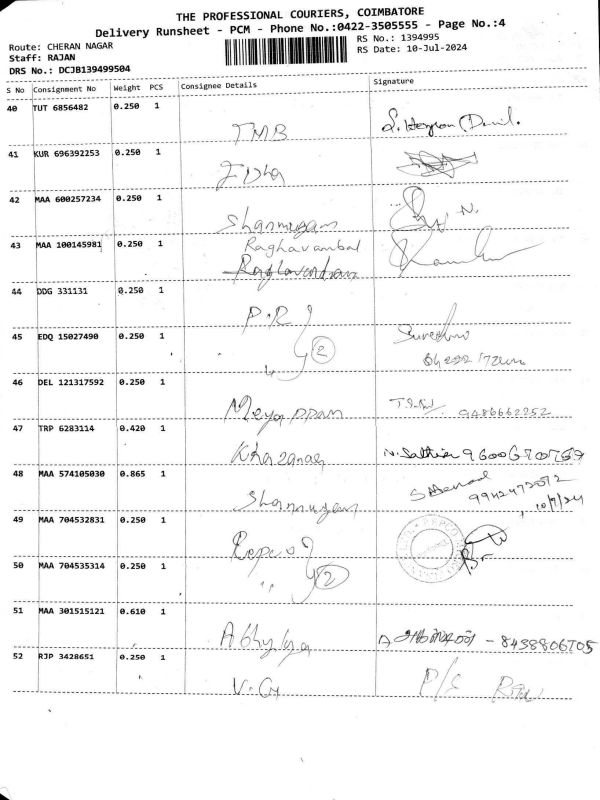 THE PROFESSIONAL COURIERS, COIMBATORE
Delivery Runsheet - PCM - Phone No.:0422-3505555 - Page No.:4
Route: CHERAN NAGAR
RS No.: 1394995
Staff: RAJAN
RS Date: 10-Jul-2024
DRS No.: DCJB139499504
S No Consignment No Weight PCS Consignee Details Signature
40 TUT 6856482 0.250 1
TMB
41 KUR 696392253 0.250 1
42 MAA 600257234 0.250 1
Shanmugam N.
43 MAA 100145981 0.250 1
Raghavambal
44 DDG 331131 0.250 1
P.R
45 EDQ 15027490 0.250 1
2
46 DEL 121317592 0.250 1
Meyappan 9486662252
47 TRP 6283114 0.420 1
Khazanag N. Sathis 9600670769
48 MAA 574105030 0.865 1
Shanmugam 9942472072
10/7/24
49 MAA 704532831 0.250 1
Repco
50 MAA 704535314 0.250 1
,, 2
51 MAA 301515121 0.610 1
A - 8438806705
52 RJP 3428651 0.250 1
P/S